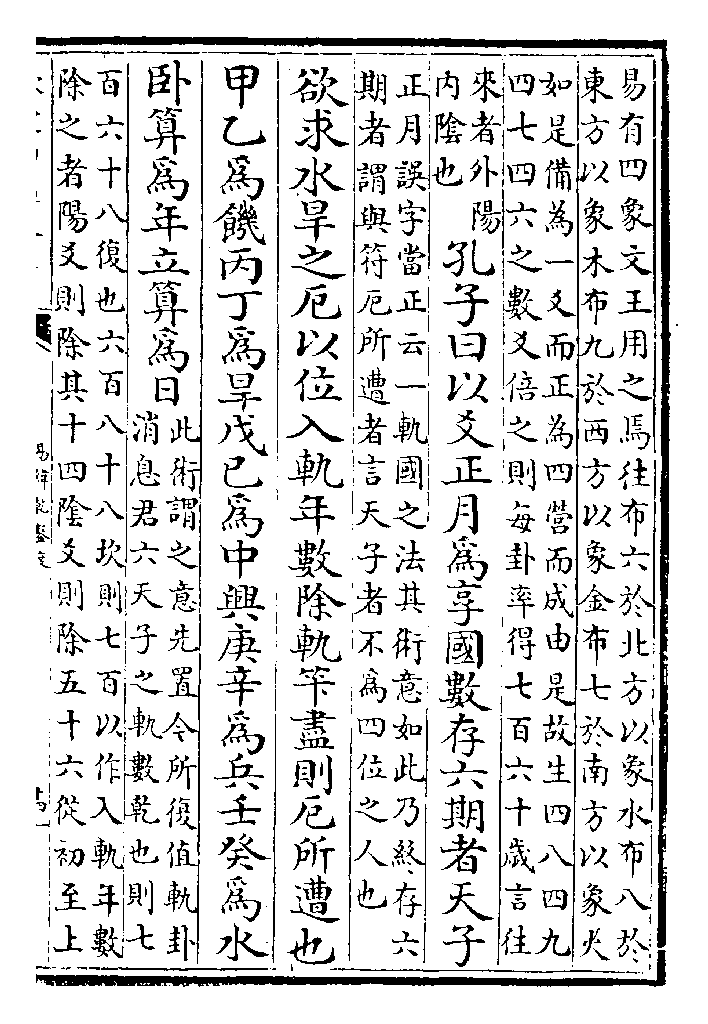 易有四象文王用之焉往布六於北方以象水布八於
東方以象木布九於西方以象金布七於南方以象火
如是備為一爻而正為四營而成由是故生四八四九
四七四六之數爻倍之則每卦率得七百六十歲言往
來者外陽
內陰也
孔子曰以爻正月爲享國數存六期者天子
正月誤字當正云一軌國之法其術意如此乃終存六
期者謂與符厄所遭者言天子者不為四位之人也
欲求水旱之厄以位入軌年數除軌竿盡則厄所遭也
甲乙爲饑丙丁爲旱戊己爲中興庚辛爲兵壬癸爲水
卧算爲年立算爲日
此術謂之意先置今所復值軌卦
消息君六天子之軌數乾也則七
百六十八復也六百八十八坎則七百以作入軌年數
除之者陽爻則除其十四陰爻則除五十六從初至上
易緯乾鑿度